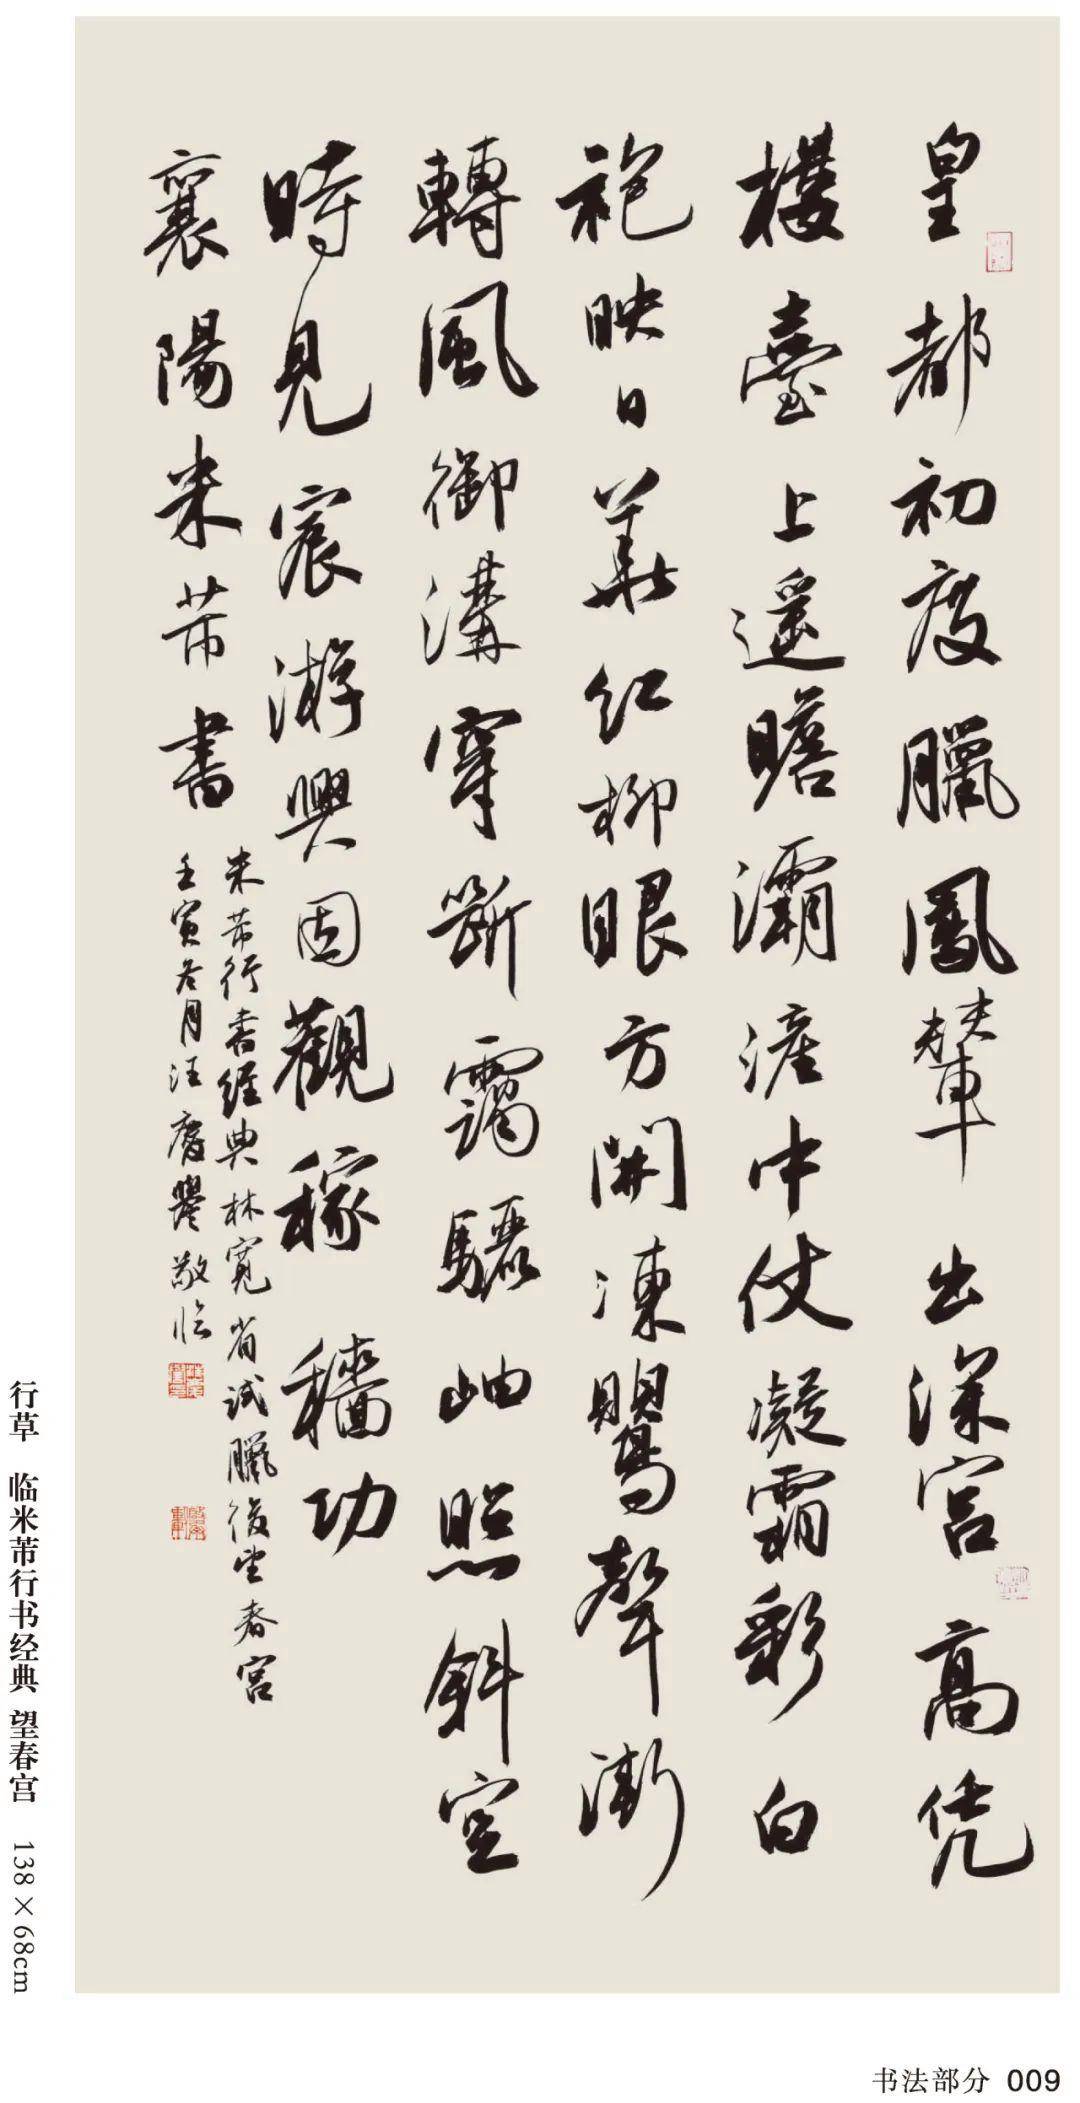 皇都初度臘鳳輦出深宫高凭
樓臺上遥瞻灞滻中仗凝霜彩白
袍映日華紅柳眼方開凍鸎聲漸
轉風御溝穿斷靄驪岫照斜空
時見宸游興因觀稼穡功
襄陽米芾書
米芾行書經典林寬省試臘後望春宫
壬寅冬月汪慶譽敬临
行草 临米芾行书经典 望春宫 138×68cm
书法部分 009